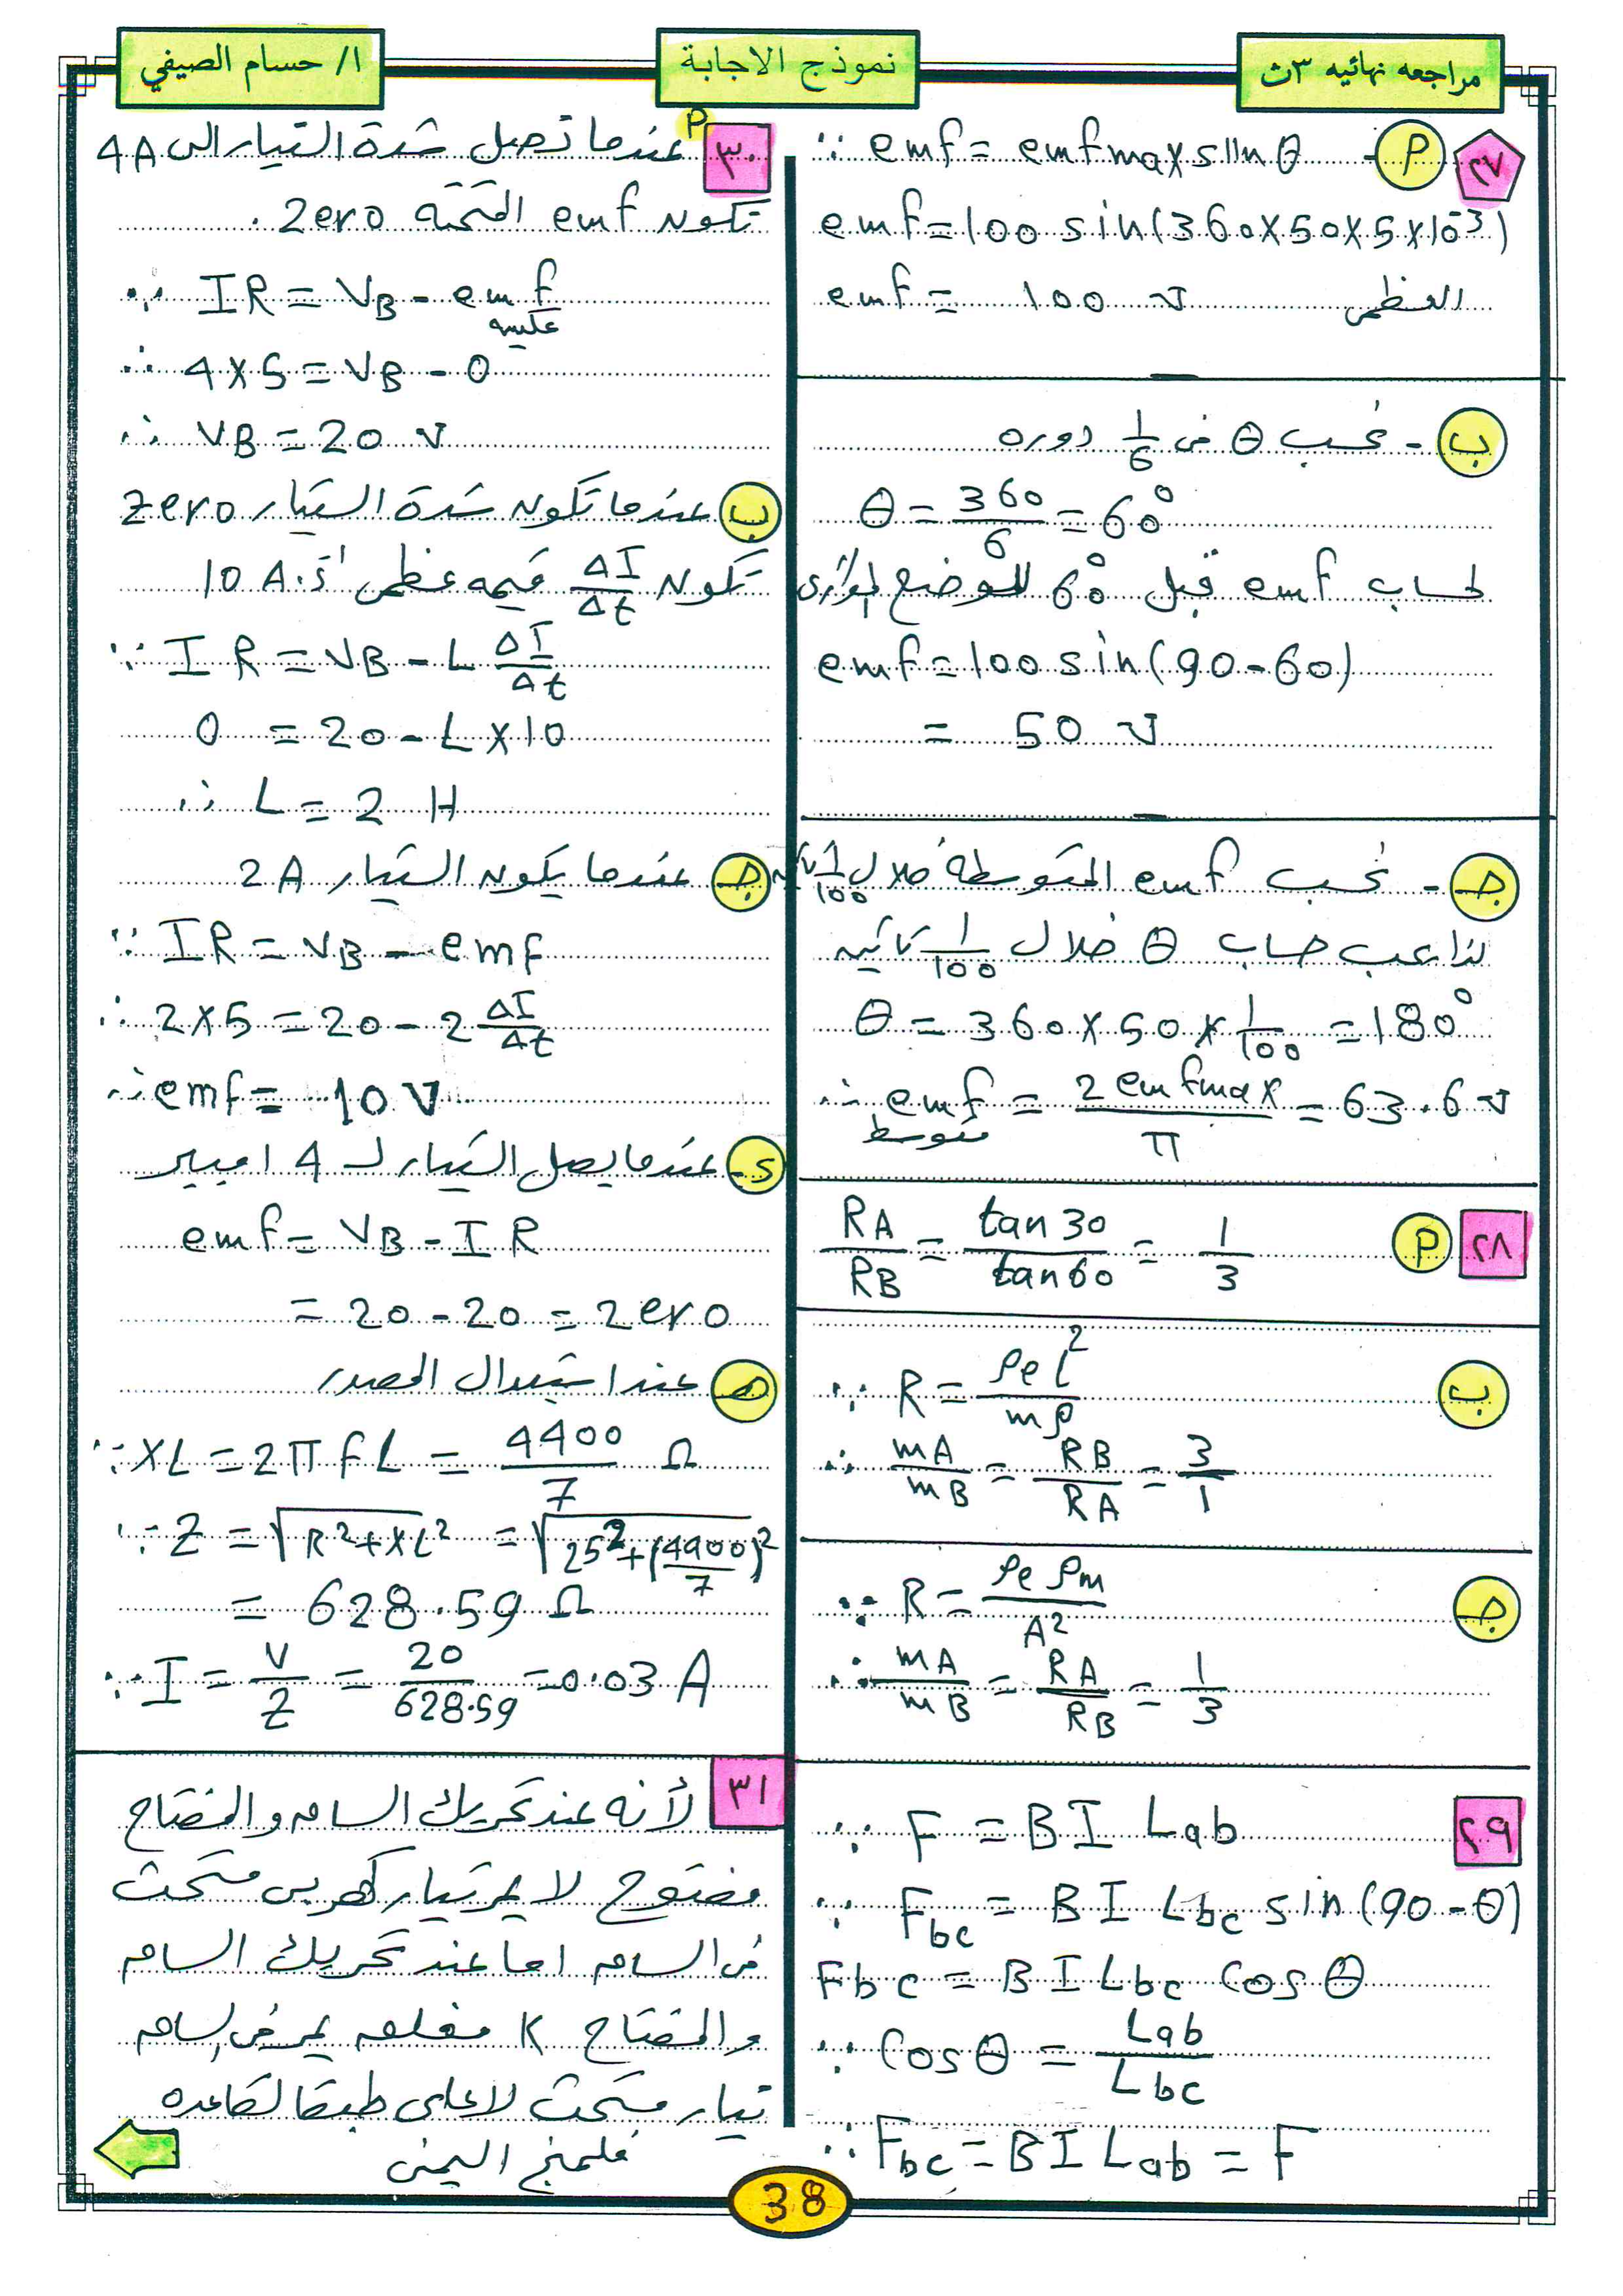 مراجعه نهائيه ٣ث
نموذج الاجابة
ا/ حسام الصيفي
٢٧
P
∵ emf = emf max sin θ
emf = 100 sin (360 × 50 × 5 × 10⁻³)
emf = 100 V العظمى
ب - نحسب θ في 1/6 دوره
θ = 360/6 = 60°
لحساب emf قبل 60° للموضع الموازى
emf = 100 sin (90 - 60)
= 50 V
جـ - نحسب emf المتوسطة خلال 1/100 ثانيه
لذا يجب حساب θ خلال 1/100 ثانيه
θ = 360 × 50 × 1/100 = 180°
∴ emf متوسط = 2 emf max / π = 63.6 V
٢٨
P
RA/RB = tan 30 / tan 60 = 1/3
ب
∵ R = ρe l² / m ρ
∴ mA/mB = RB/RA = 3/1
جـ
∵ R = ρe ρm / A²
∴ mA/mB = RA/RB = 1/3
٢٩
∵ F = B I Lab
∵ Fbc = B I Lbc sin (90 - θ)
Fbc = B I Lbc Cos θ
∵ Cos θ = Lab / Lbc
∴ Fbc = B I Lab = F
٣٠
P عندما تصل شدة التيار الى 4A
تكون emf المستحثه Zero .
∵ IR = VB - emf عكسيه
∴ 4 × 5 = VB - 0
∴ VB = 20 V
ب عندما تكون شدة التيار Zero
تكون ΔI/Δt قيمه عظمى 10 A.S⁻¹
∵ I R = VB - L ΔI/Δt
0 = 20 - L × 10
∴ L = 2 H
جـ عندما يكون التيار 2A
∵ IR = VB - emf
∴ 2 × 5 = 20 - 2 ΔI/Δt
∴ emf = 10 V
د - عندما يصل التيار لـ 4 امبير
emf = VB - I R
= 20 - 20 = Zero
هـ عند استبدال المصدر
∵ XL = 2π f L = 4400/7 Ω
∵ Z = √R² + XL² = √25² + (4400/7)²
= 628.59 Ω
∵ I = V/Z = 20/628.59 = 0.03 A
٣١
لأنه عند تحريك الساق والمفتاح
مفتوح لا يمر تيار كهربى مستحث
فى الساق اما عند تحريك الساق
والمفتاح K مغلق يمر فى الساق
تيار مستحث لاعلى طبقا لقاعده
فلمنج اليمنى
38